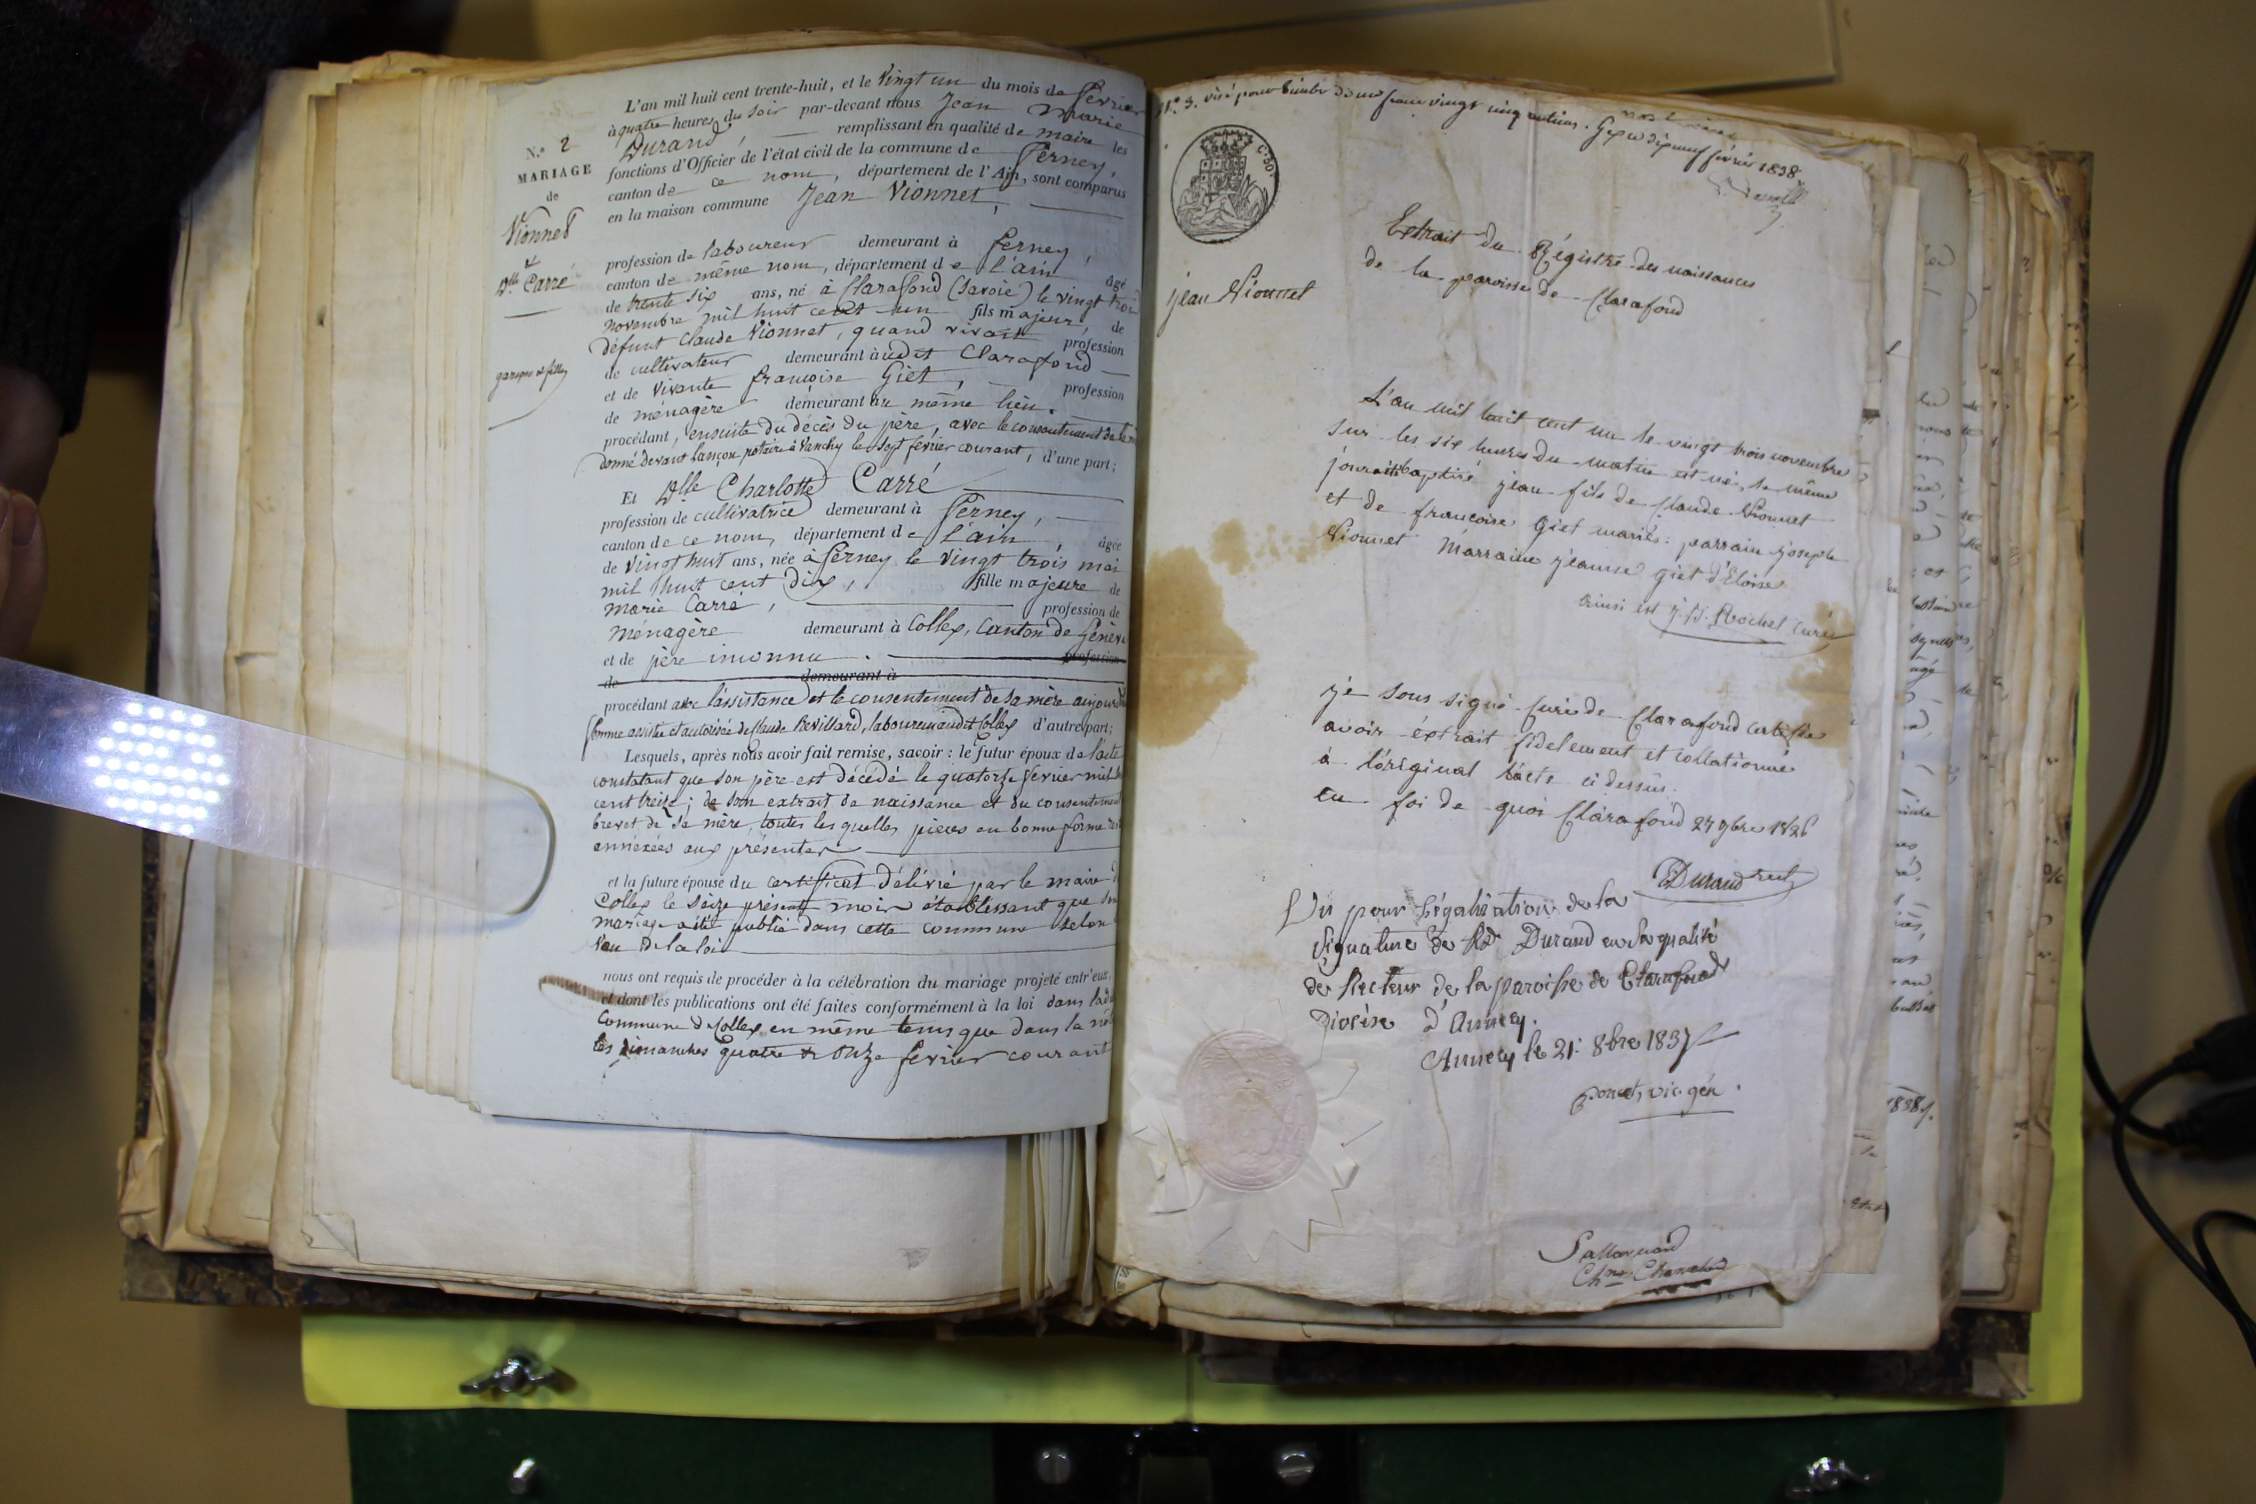 L'an mil huit cent trente-huit, et le vingt un du mois de février
à quatre heures du soir par-devant nous Jean Marie
Durand, remplissant en qualité de maire les
fonctions d'Officier de l'état civil de la commune de Ferney,
canton de ce nom, département de l'Ain, sont comparus
en la maison commune Jean Vionnet,
N.° 2
MARIAGE
de
Vionnet
et
Dlle Carré
garçon et fille
profession de laboureur demeurant à Ferney,
canton de même nom, département de l'ain âgé
de trente six ans, né à Clarafond (Savoie) le vingt trois
novembre mil huit cent un fils majeur, de
défunt Claude Vionnet, quand vivait profession
de cultivateur demeurant audit Clarafond
et de vivante françoise Giet, profession
de ménagère demeurant au même lieu.
procédant, ensuite du décès du père, avec le consentement de
donné devant Lançon notaire à Vanchy le sept février courant, d'une part;
Et Dlle Charlotte Carré
profession de cultivatrice demeurant à Ferney,
canton de ce nom, département de l'ain, âgée
de vingt huit ans, née à Ferney le vingt trois mai
mil huit cent dix, fille majeure de
marie Carré, profession de
ménagère demeurant à Collex, Canton de Genève
et de père inconnu. profession
de demeurant à
procédant avec l'assistance et le consentement de sa mère
femme assistée et autorisée de Claude Revillard, laboureur audit Collex d'autre part;
Lesquels, après nous avoir fait remise, savoir : le futur époux de l'acte
constatant que son père est décédé le quatorze février mil
cent treize; de son extrait de naissance et du consentement
brevet de sa mère, toutes les quelles pièces en bonne forme
annexées aux présentes
et la future épouse du certificat délivré par le maire
Collex le seize présent mois établissant que
mariage a été publié dans cette commune selon
vœu de la loi
nous ont requis de procéder à la célébration du mariage projeté entr'eux,
et dont les publications ont été faites conformément à la loi dans
commune de Collex en même tems que dans la
les dimanches quatre & onze février courant
N° 3. visé pour timbre d'un franc vingt cinq centimes. Gex le dix neuf février 1838.
C. 50
jean Vionnet
Extrait du Régistre des naissances
de la paroisse de Clarafond
L'an mil huit cent un le vingt trois novembre
sur les six heures du matin est né, le même
jour a été baptisé jean fils de Claude Vionnet
et de françoise Giet mariés : parrain joseph
Vionnet Marraine jeanne giet d'Eloise
ainsi est J. P. Rochet curé
je sous signé Curé de Clarafond certifie
avoir éxtrait fidelement et collationné
à l'original l'acte ci dessus.
en foi de quoi Clarafond 27 9bre 1826
Durand rect
Vu pour légalisation de la
signature de Rd Durand en sa qualité
de Recteur de la paroisse de Clarafond
Diocèse d'Annecy.
Annecy le 21: 8bre 1837
Poncet, vic. gén.